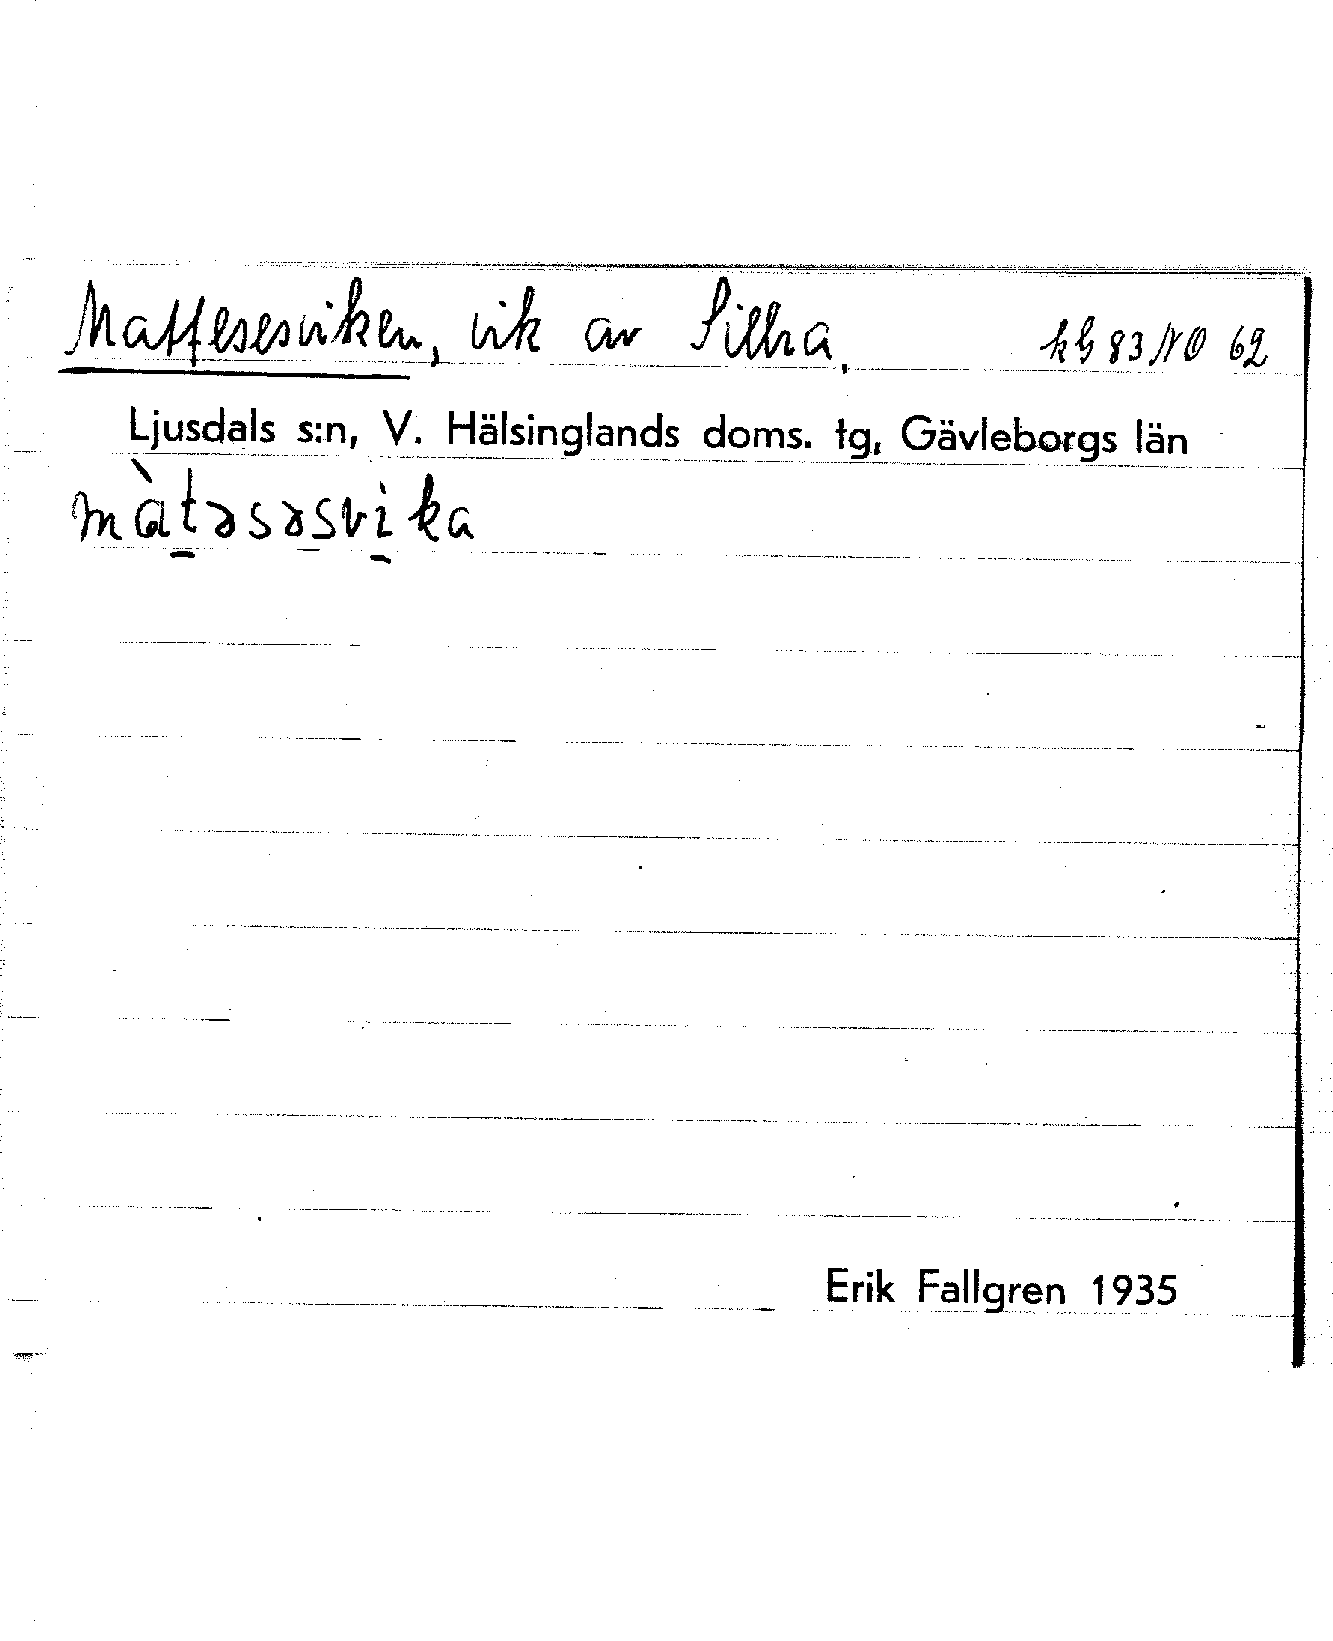 Mattesesviken, vik av Sillra. kG 83 NO 62
Ljusdals s:n, V. Hälsinglands doms. tg, Gävleborgs län
màtəsəsvika
Erik Fallgren 1935